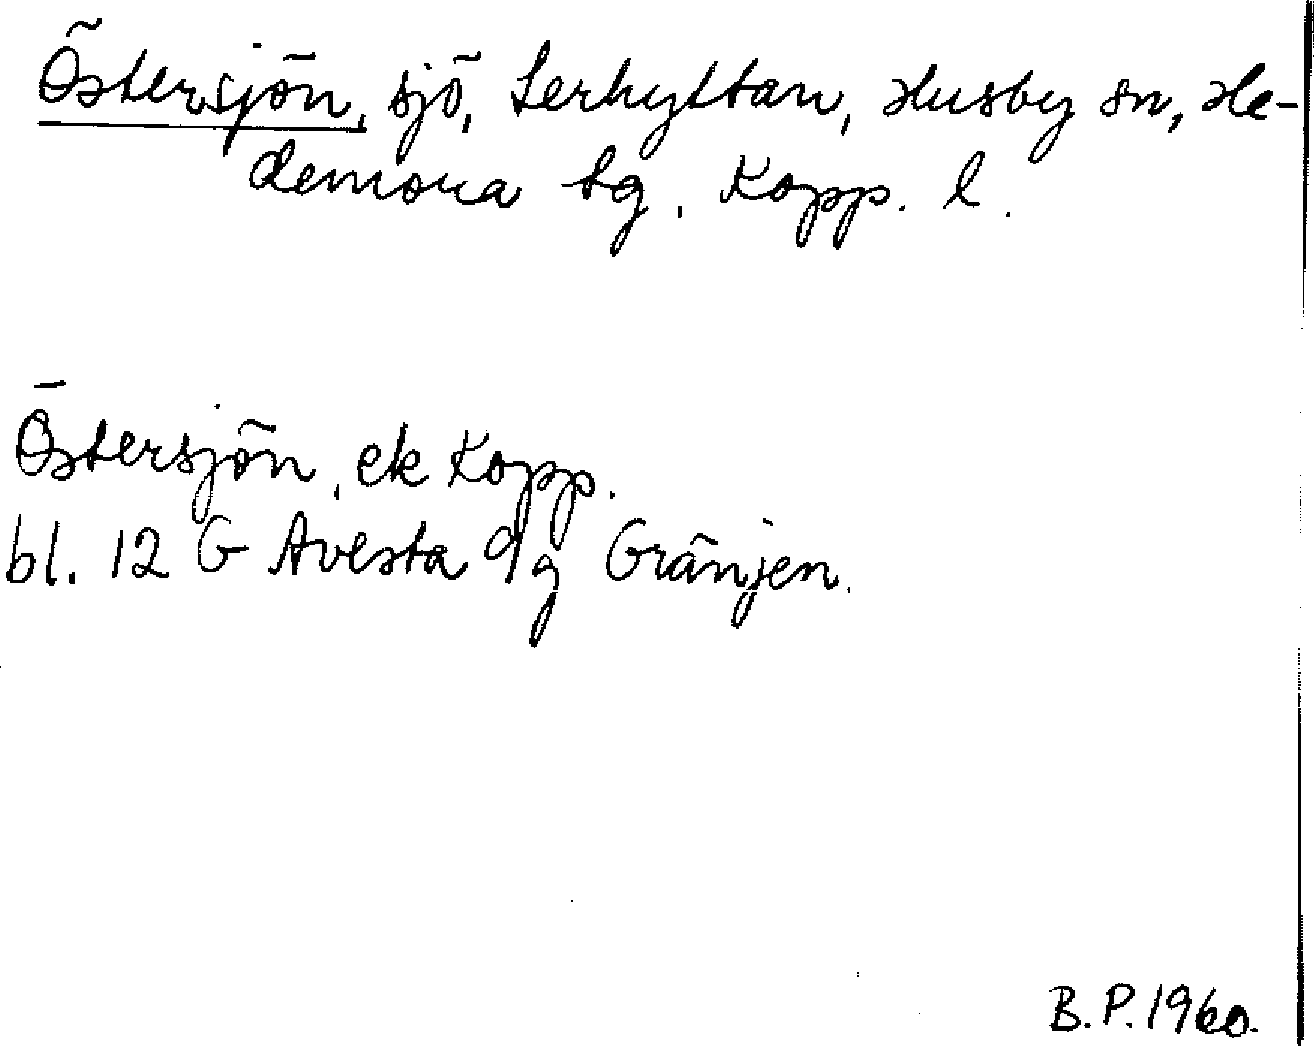 Östersjön, sjö, Lerhyttan, Husby sn, He-
demora tg, Kopp. l.
Östersjön, ek Kopp.
bl. 12 G Avesta 9/g Gränjen.
B.P. 1960.